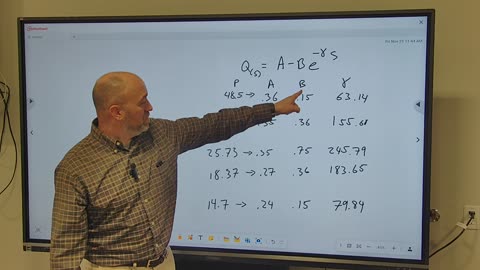 Q(s) = A - Be^-γs
P A B γ
48.5 → .36 .15 63.14
.35 .36
25.73 → .35 .75 245.79
18.37 → .27 .36 183.65
14.7 → .24 .15 79.84